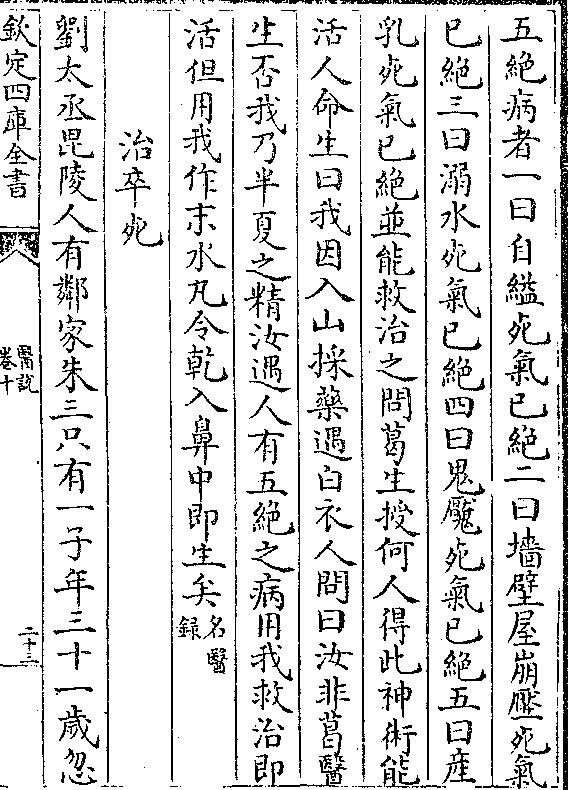 五絶病者一曰自縊死氣已絶二曰墻壁屋崩壓死氣
已絶三曰溺水死氣已絶四曰鬼魘死氣已絶五曰産
乳死氣已絶並能救治之問葛生授何人得此神術能
活人命生曰我因入山採藥遇白衣人問曰汝非葛醫
生否我乃半夏之精汝遇人有五絶之病用我救治即
活但用我作末水丸令乾入鼻中即生矣名醫
録
治卒死
劉太丞毘陵人有鄰家朱三只有一子年三十一歲忽
欽定四庫全書
醫說
卷十
二十三